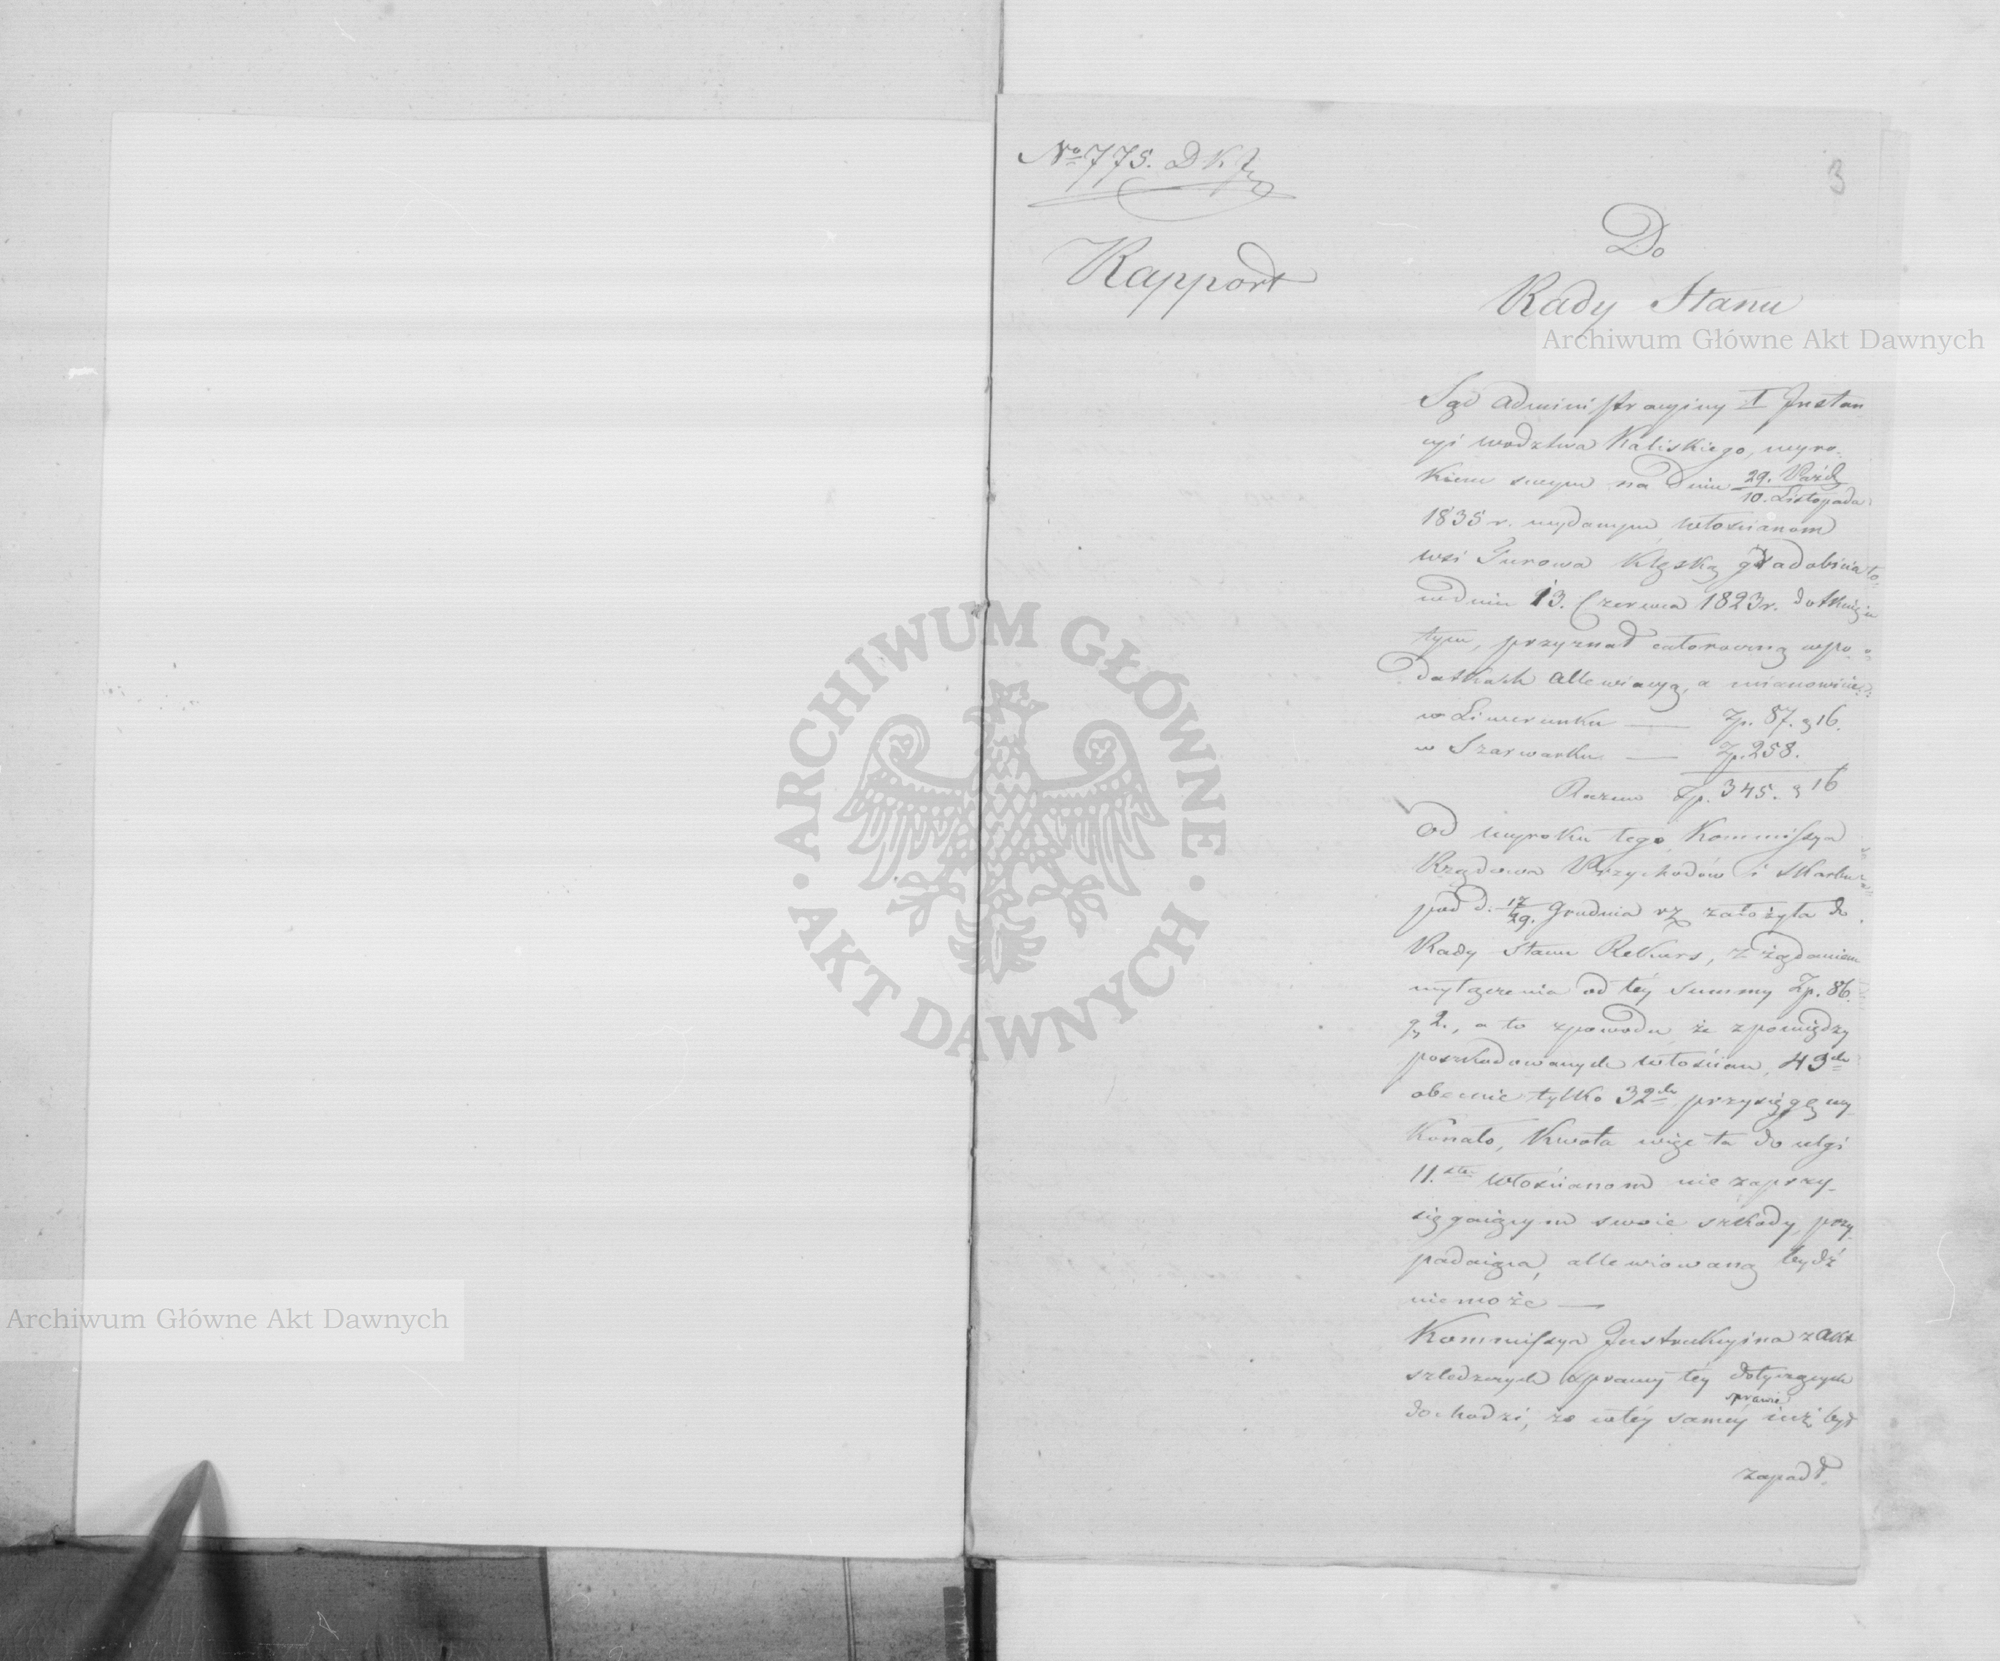 No 775. D.K.J.
3
Rapport
Do
Rady Stanu
Archiwum Główne Akt Dawnych
Sąd administracyiny I Instan
cyi wodztwa Kaliskiego, wyro-
kiem swym na dniu 29. Paźdz / 10. Listopada
1835 r. wydanym, włościanom
wsi Turowa klęską gradobicia
w dniu 13. Czerwca 1823 r. dotknię
tym, przyznał całoroczną w po-
datkach allewiacyą, a mianowicie
w Liwerunku — Zp. 87. g 16.
w Szarwarku — Zp. 258.
Razem Zp. 345. g 16
Od wyroku tego Kommissya
Rządowa Przychodów i Skarbu
pod d. 17/29. Grudnia rż założyła do
Rady Stanu Rekurs, z żądaniem
wyłączenia od téy summy Zp. 86.
g 2., a to z powodu, że z pomiędzy
poszkodowanych włościan, 43ch
obecnie tylko 32ch przysięgę wy-
konało, kwota więc ta do ulgi
11.stu włościanom nie zaprzy-
sięgaiącym swoie szkody, przy-
padaiąca, allewiowaną bydź
niemoże —
Kommissya Instrukcyina z akt
szledzczych sprawy téy dotyczących
dochodzi, że w téy saméy sprawie iuż był
zapadł.
ARCHIWUM GŁÓWNE · AKT DAWNYCH ·
Archiwum Główne Akt Dawnych